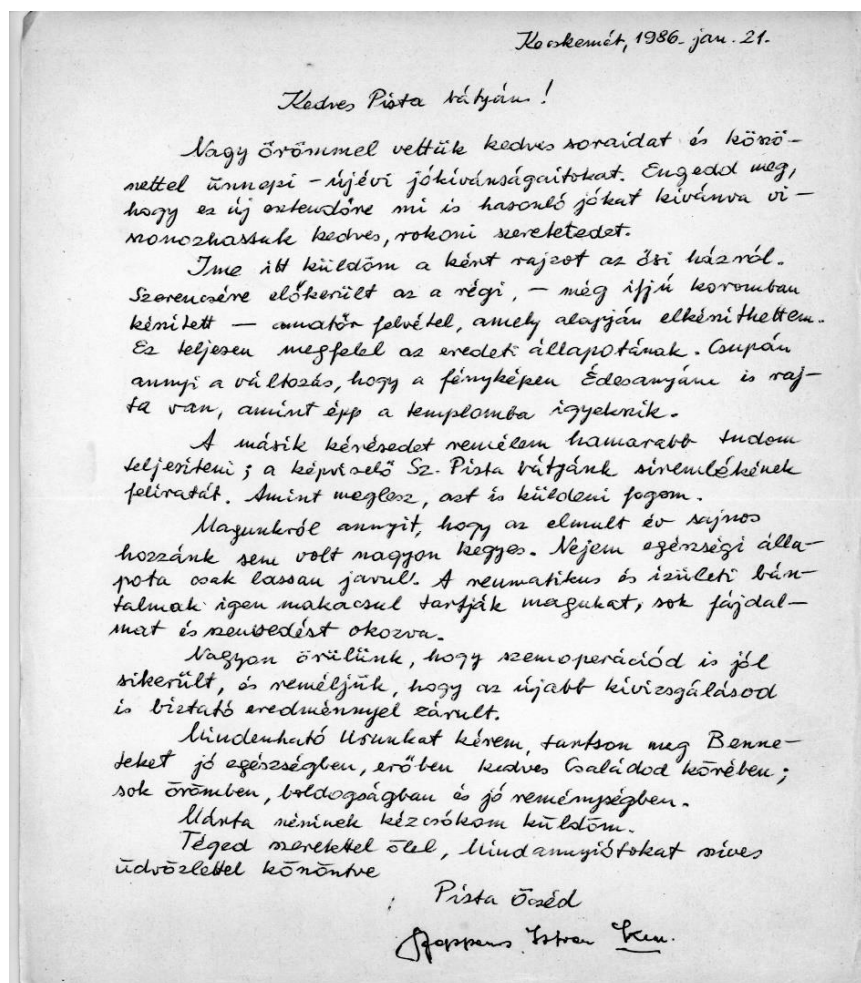 Kecskemét, 1986. jan. 21.
Kedves Pista bátyám!
Nagy örömmel vettük kedves soraidat és köszö-
nettel ünnepi - újévi jókívánságaitokat. Engedd meg,
hogy ez új esztendőre mi is hasonló jókat kívánva vi-
szonozhassuk kedves, rokoni szeretetedet.
Ime itt küldöm a kért rajzot az ősi házról.
Szerencsére előkerült az a régi, - még ifjú koromban
készített - amatőr felvétel, amely alapján elkészíthettem.
Ez teljesen megfelel az eredeti állapotának. Csupán
annyi a változás, hogy a fényképen Édesanyám is raj-
ta van, amint épp a templomba igyekszik.
A másik kérésedet remélem hamarabb tudom
teljesíteni; a képviselő Sz. Pista bátyánk síremlékének
feliratát. Amint meglesz, azt is küldeni fogom.
Magunkról annyit, hogy az elmult év sajnos
hozzánk sem volt nagyon kegyes. Nejem egészségi álla-
pota csak lassan javul. A reumatikus és izületi bán-
talmak igen makacsul tartják magukat, sok fájdal-
mat és szenvedést okozva.
Nagyon örülünk, hogy szemoperációd is jól
sikerült, és reméljük, hogy az újabb kivizsgálásod
is biztató eredménnyel zárult.
Mindenható Urunkat kérem, tartson meg Benne-
teket jó egészségben, erőben kedves Családod körében;
sok örömben, boldogságban és jó reménységben.
Márta néninek kézcsókom küldöm.
Téged szeretettel ölel, Mindannyiótokat szives
üdvözlettel köszöntve
Pista Öcséd
István